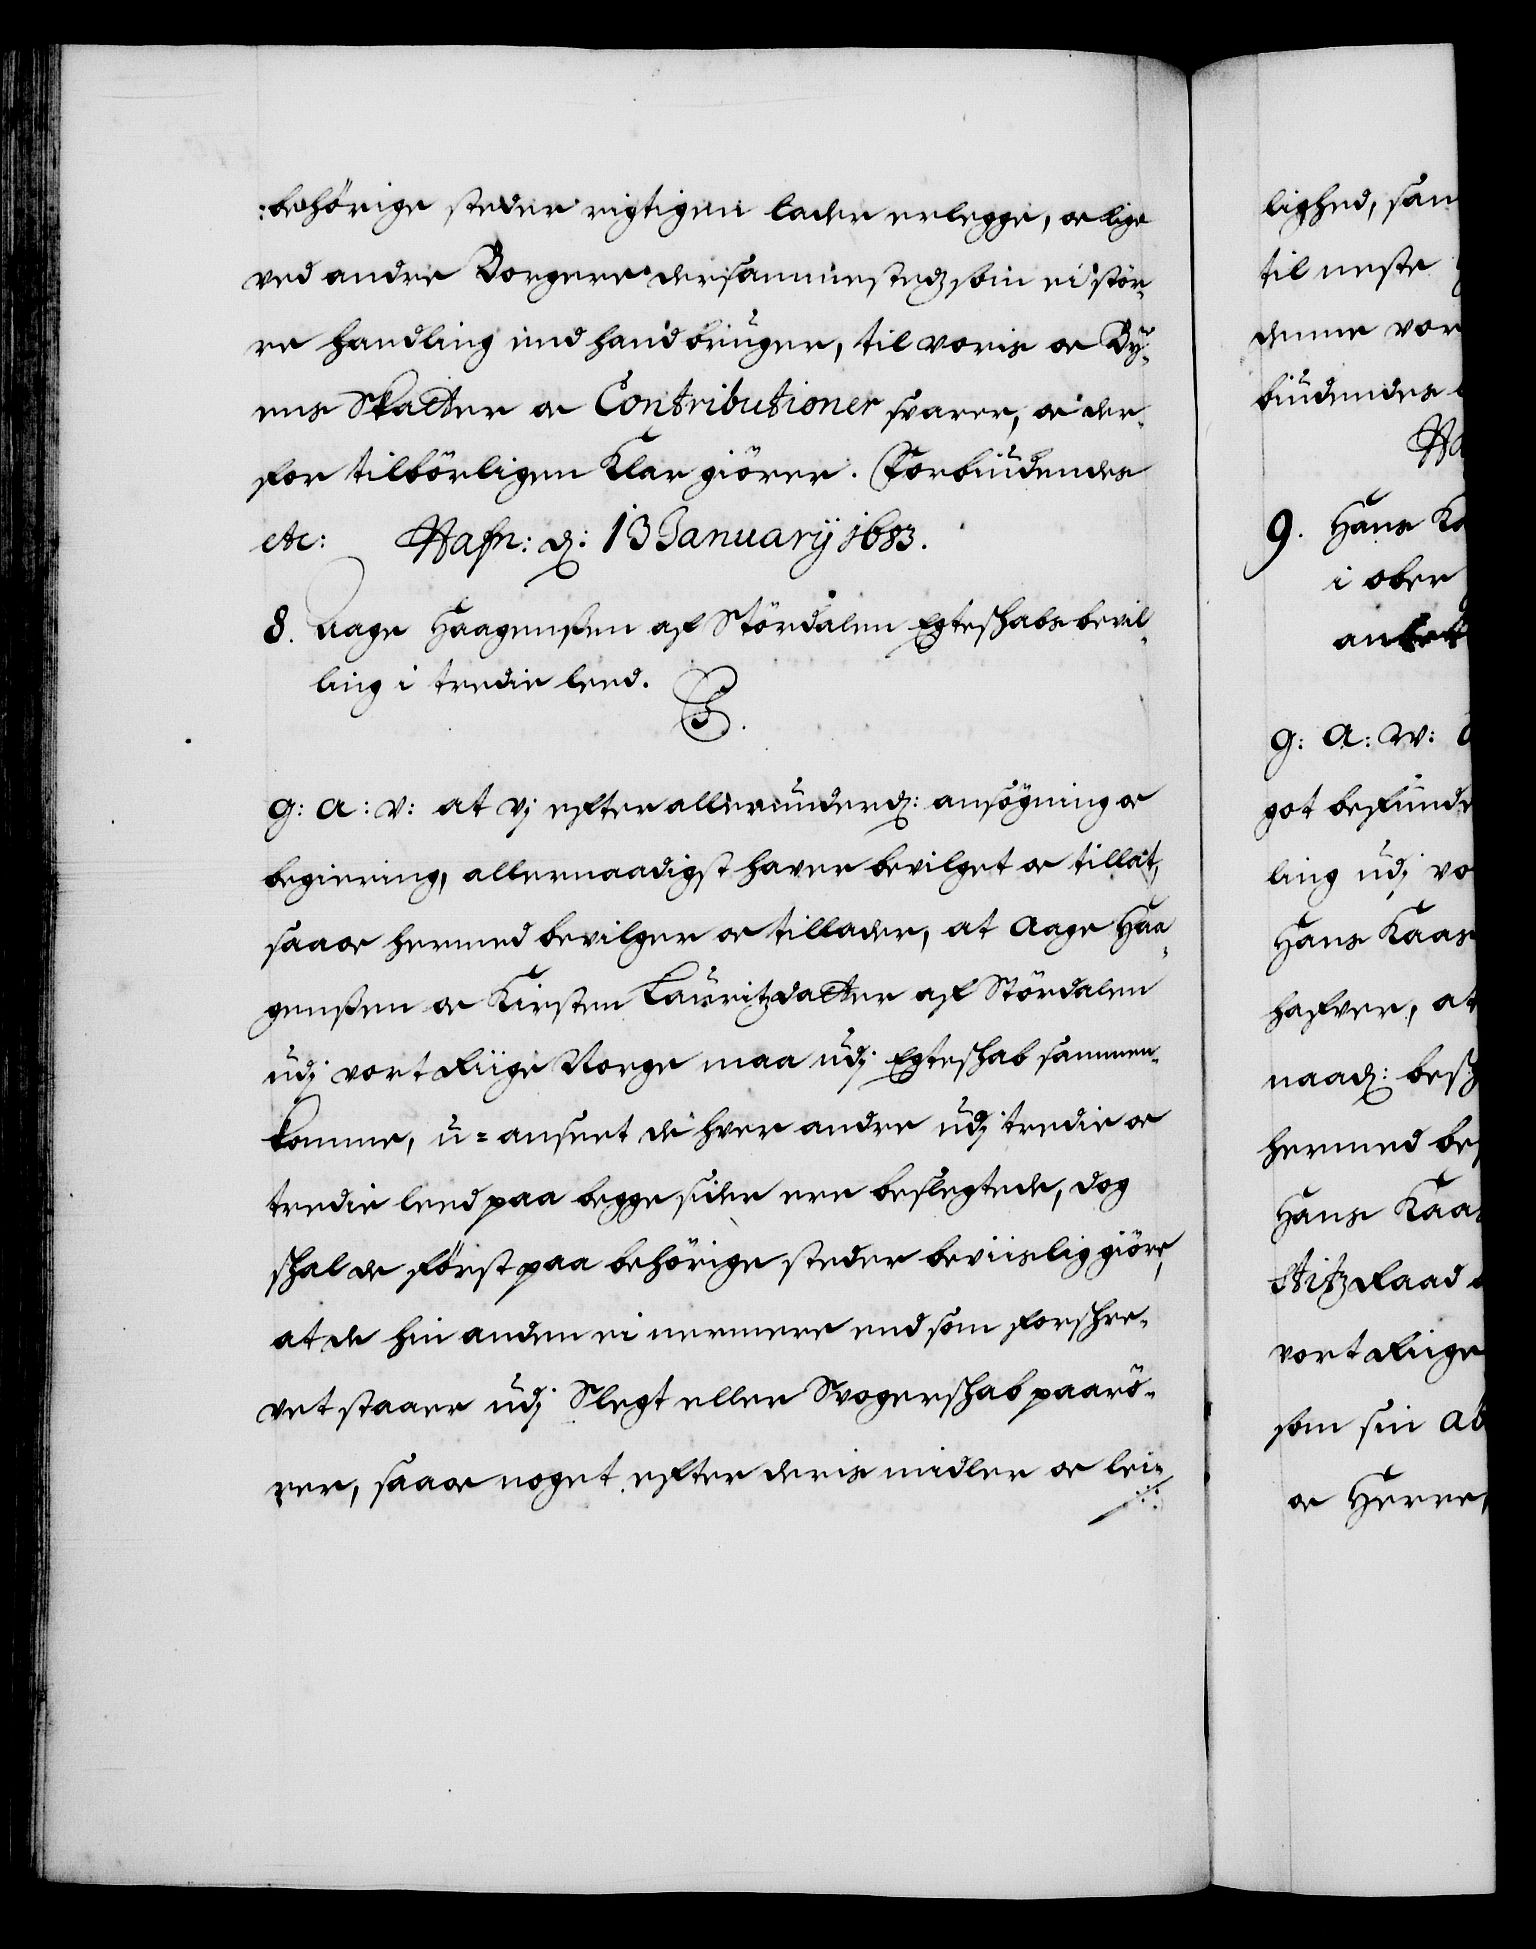 :behörige steder rigtigen lader erlegge, oc lige
ved andre Borgere dersammestedz som ei stör¬
re handling end hand bruger, til voris oc By¬
ens Skatter oc Contributioner svarer, oc der¬
for tilbörligen Klar giörer. Forbiudendes
etc: Hafn: d: 13 January 1683.
8. Aage Haagenßen af Stördalen Egteskabs bevil¬
ling i tredie leed.
C5.
G: A: V: at vj efter allerunderd: ansögning oc
begiering, allernaadigst haver bevilget oc tilladt,
saa oc hermed bevilger oc tillader, at Aage Haa¬
genßen oc Kirsten Lauritzdatter af Stördalen
udj vort Riige Norge maa udj Egteskab sammen¬
komme, u=anseet de hver andre udj tredie oc
tredie leed paa begge sider ere beslegtede, dog
skal de först paa behörige steder beviislig giöre,
at de hin anden ei nermere end som forskre¬
vet staaer udj Slegt eller Svogerskab paarö¬
rer, saa oc noget efter deris midler oc lei¬
lighed, sam
til neste
denne vor
biudendes
Ha
9. Hans Ka
i ober
anbet
G: A: W:
got befunde
ling udj vo
Hans Kaas
hafver, at
naad: besk
hermed be
Hans Kaa
stitz Raad
vort Riige
som sin Ab
oc Herre,